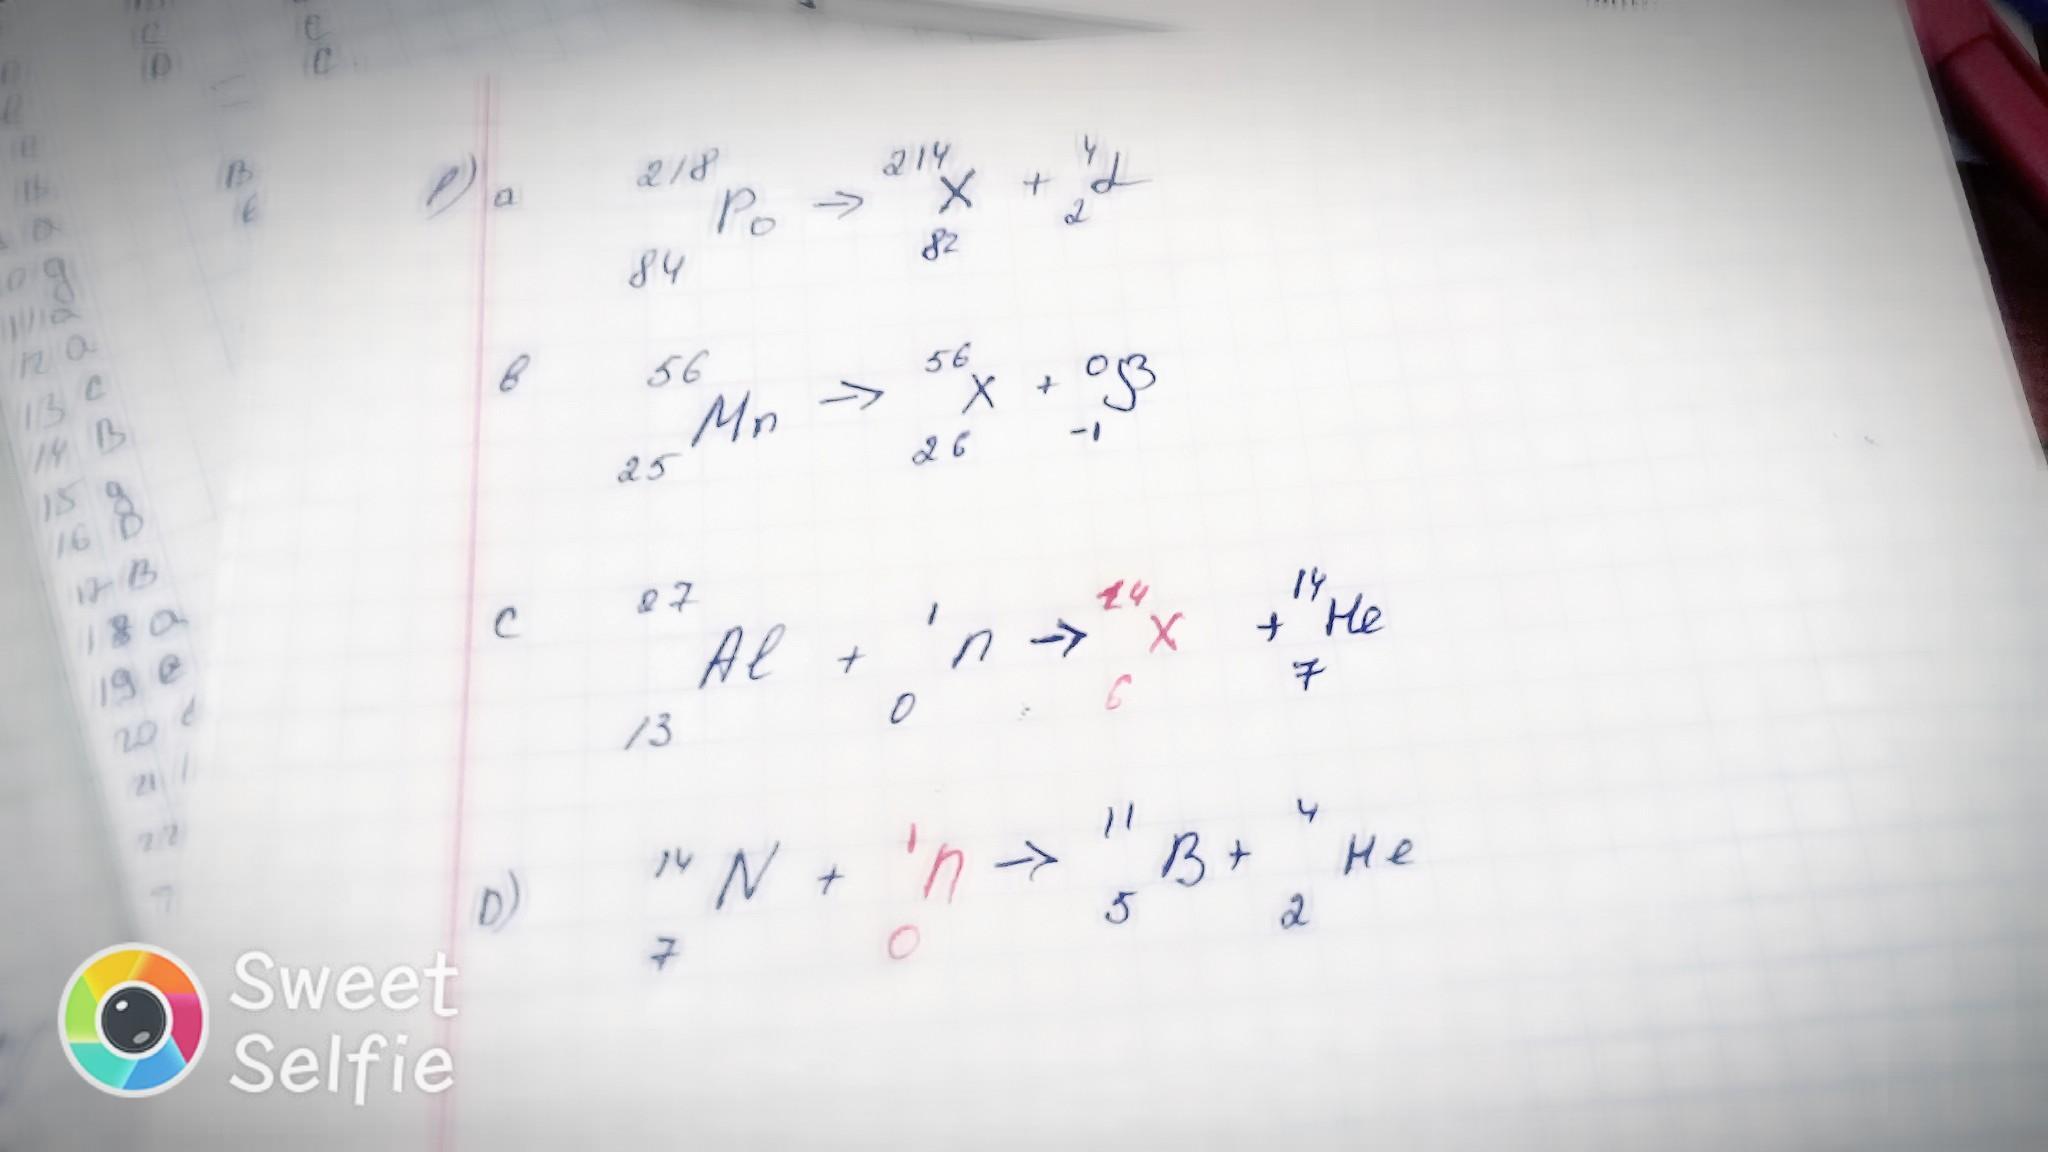 C C
D C
B
C
P) a 218 84 Po → 214 82 X + 4 2 α
b 56 25 Mn → 56 26 X + 0 -1 β
C 27 13 Al + 1 0 n → 14 6 X + 14 7 He
D) 14 7 N + 1 0 n → 11 5 B + 4 2 He
12 a
13 C
14 B
15 g
16 D
17 B
18 a
19 e
20
21
22
Sweet
Selfie